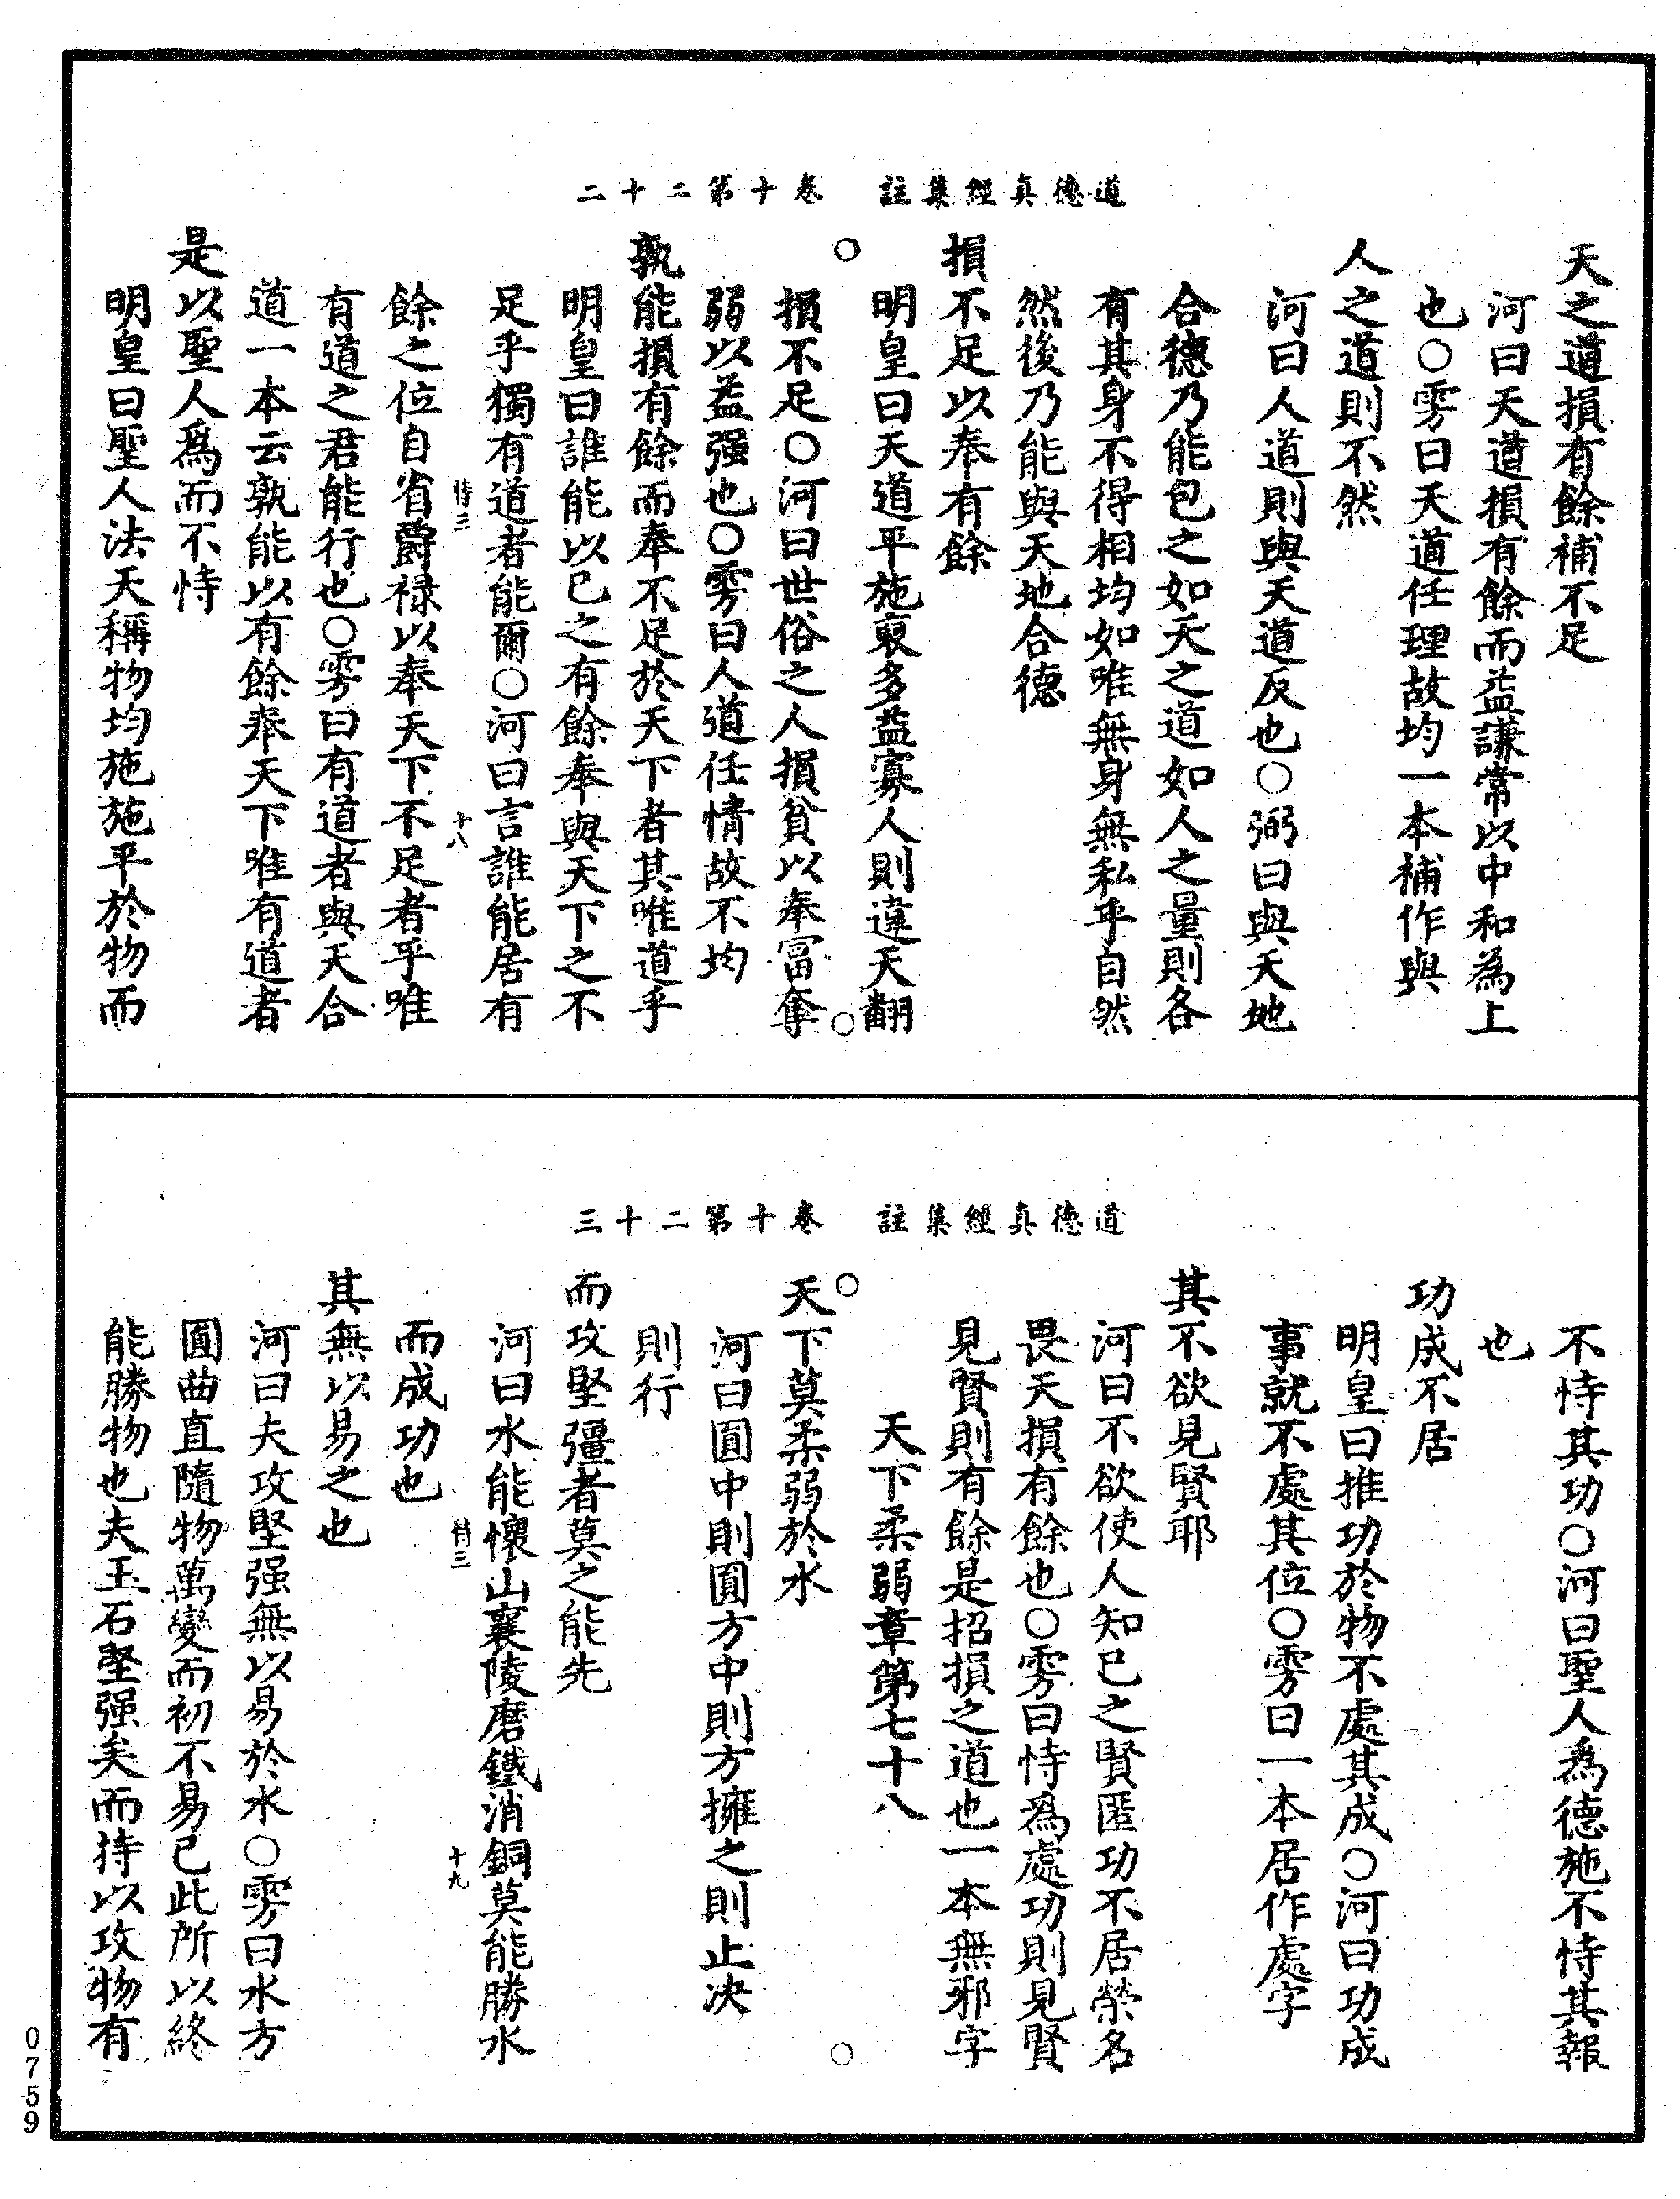 道德真經集註　卷十第二十二
天之道損有餘補不足
河曰天道損有餘而益謙常以中和為上
也○雱曰天道任理故均一本補作與
人之道則不然
河曰人道則與天道反也○弼曰與天地
合德乃能包之如天之道如人之量則各
有其身不得相均如唯無身無私乎自然
然後乃能與天地合德
損不足以奉有餘
明皇曰天道平施裒多益寡人則違天翻
損不足○河曰世俗之人損貧以奉富奪
弱以益强也○雱曰人道任情故不均
孰能損有餘而奉不足於天下者其唯道乎
明皇曰誰能以已之有餘奉與天下之不
足乎獨有道者能爾○河曰言誰能居有
恃三　十八
餘之位自省爵祿以奉天下不足者乎唯
有道之君能行也○雱曰有道者與天合
道一本云孰能以有餘奉天下唯有道者
是以聖人爲而不恃
明皇曰聖人法天稱物均施施平於物而
道德真經集註　卷十第二十三
不恃其功○河曰聖人爲德施不恃其報
也
功成不居
明皇曰推功於物不處其成○河曰功成
事就不處其位○雱曰一本居作處字
其不欲見賢耶
河曰不欲使人知已之賢匿功不居榮名
畏天損有餘也○雱曰恃爲處功則見賢
見賢則有餘是招損之道也一本無邪字
天下柔弱章第七十八
天下莫柔弱於水
河曰圓中則圓方中則方擁之則止决
則行
而攻堅彊者莫之能先
河曰水能懷山襄陵磨鐵消銅莫能勝水
恃三　十九
而成功也
其無以易之也
河曰夫攻堅强無以易於水○雱曰水方
圓曲直隨物萬變而初不易已此所以終
能勝物也夫玉石堅强矣而持以攻物有
0759